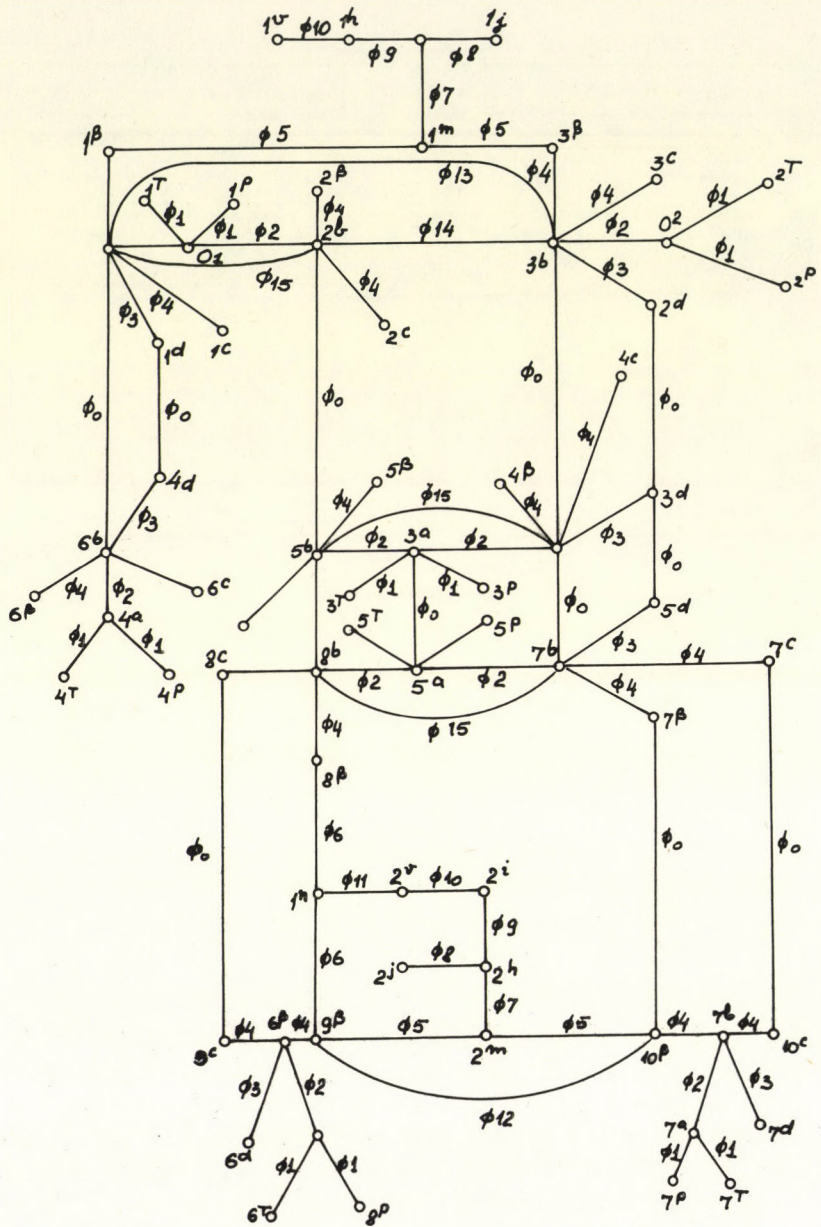 1v ϕ10 1h ϕ9 ϕ8 1j
ϕ7
1β ϕ5 1m ϕ5 3β
ϕ13
1T 1P 2β ϕ4 3c 2T
ϕ1 ϕ1 ϕ4 ϕ4 ϕ1
ϕ2 2b ϕ14 ϕ2 O2
O1 3b ϕ1
ϕ15 ϕ3 2P
ϕ3 ϕ4 ϕ4 2d
1d 1c 2c
4c
ϕ0 ϕ0 ϕ0 ϕ0 ϕ0
ϕ4
4d 5β 4β 3d
ϕ3 ϕ4 ϕ15 ϕ4 ϕ3
6b 5b ϕ2 3a ϕ2
6β ϕ4 ϕ2 6c ϕ1 ϕ1 ϕ0 ϕ0
4a 3T 3P 5d
ϕ1 ϕ1 5T ϕ0 5P ϕ3
4T 4P 8c 8b ϕ2 5a ϕ2 7b ϕ4 7c
ϕ4 ϕ15 ϕ4 7β
8β
ϕ0 ϕ6 ϕ0 ϕ0
1n ϕ11 2v ϕ10 2i
ϕ9
ϕ6 2j ϕ8 2h
ϕ7
9c ϕ4 6β ϕ4 9β ϕ5 2m ϕ5 10β ϕ4 7b ϕ4 10c
ϕ3 ϕ2 ϕ12 ϕ2 ϕ3
6d 7a 7d
ϕ1 ϕ1 ϕ1 ϕ1
6T 8P 7P 7T